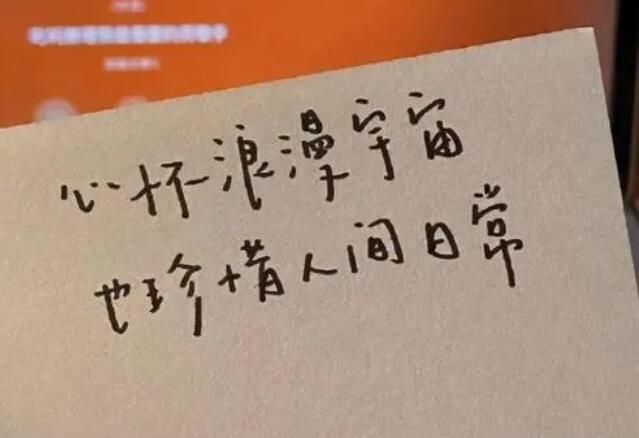 心怀浪漫宇宙
也珍惜人间日常